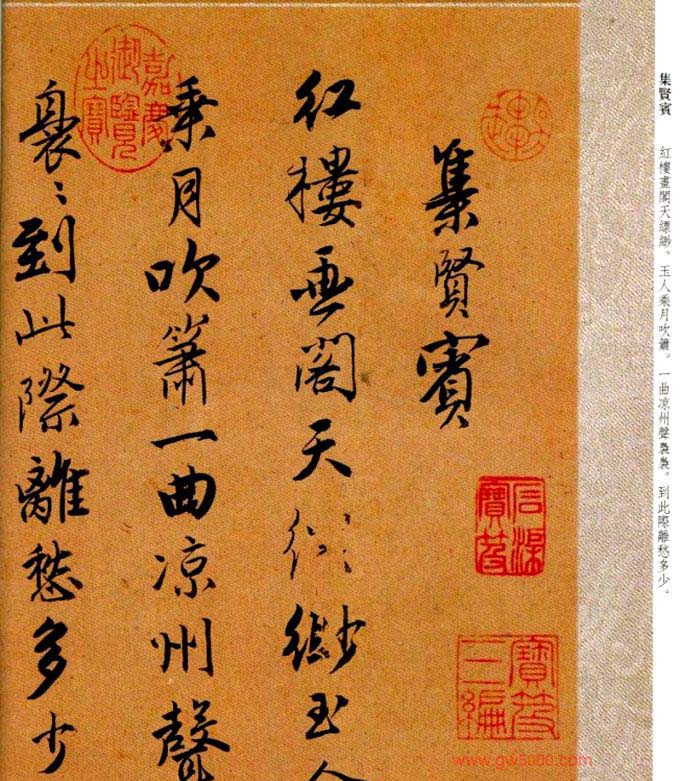 集賢賓　紅樓畫閣天縹緲。玉人乘月吹簫。一曲凉州聲裊裊。到此際離愁多少。
集賢賓
紅樓畫閣天縹緲玉人
乘月吹簫一曲凉州聲
裊〻到此際離愁多少
嘉慶御覽之寶
石渠寶笈
寶笈三編
www.gw5000.com